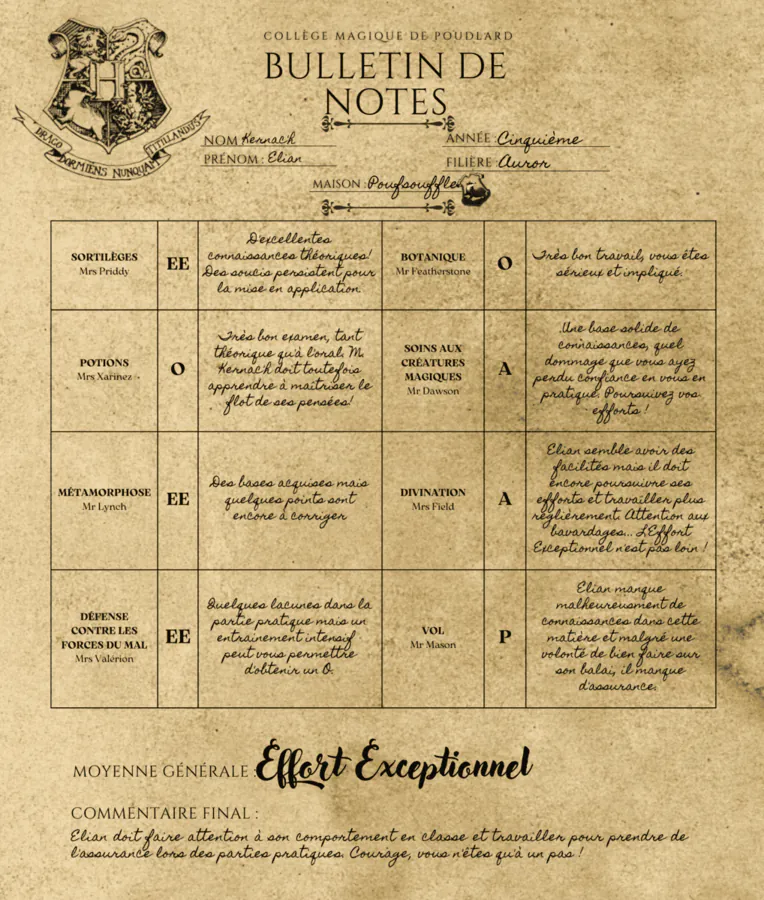 COLLÈGE MAGIQUE DE POUDLARD
BULLETIN DE
NOTES
DRACO DORMIENS NUNQUAM TITILLANDUS
NOM Kernach
PRÉNOM : Elian
ANNÉE Cinquième
FILIÈRE Auror
MAISON : Poufsouffle
SORTILÈGES
Mrs Priddy
EE
D'excellentes
connaissances théoriques!
Des soucis persistent pour
la mise en application.
BOTANIQUE
Mr Featherstone
O
Très bon travail, vous êtes
sérieux et impliqué.
POTIONS
Mrs Xarinez
O
Très bon examen, tant
théorique qu'à l'oral. M.
Kernach doit toutefois
apprendre à maîtriser le
flot de ses pensées!
SOINS AUX
CRÉATURES
MAGIQUES
Mr Dawson
A
Une base solide de
connaissances, quel
dommage que vous ayez
perdu confiance en vous en
pratique. Poursuivez vos
efforts !
MÉTAMORPHOSE
Mr Lynch
EE
Des bases acquises mais
quelques points sont
encore à corriger
DIVINATION
Mrs Field
A
Elian semble avoir des
facilités mais il doit
encore poursuivre ses
efforts et travailler plus
règlièrement. Attention aux
bavardages... L'Effort
Exceptionnel n'est pas loin !
DÉFENSE
CONTRE LES
FORCES DU MAL
Mrs Valérion
EE
Quelques lacunes dans la
partie pratique mais un
entrainement intensif
peut vous permettre
d'obtenir un O.
VOL
Mr Mason
P
Elian manque
malheureusement de
connaissances dans cette
matière et malgré une
volonté de bien faire sur
son balai, il manque
d'assurance.
MOYENNE GÉNÉRALE : Effort Exceptionnel
COMMENTAIRE FINAL :
Elian doit faire attention à son comportement en classe et travailler pour prendre de
l'assurance lors des parties pratiques. Courage, vous n'êtes qu'à un pas !